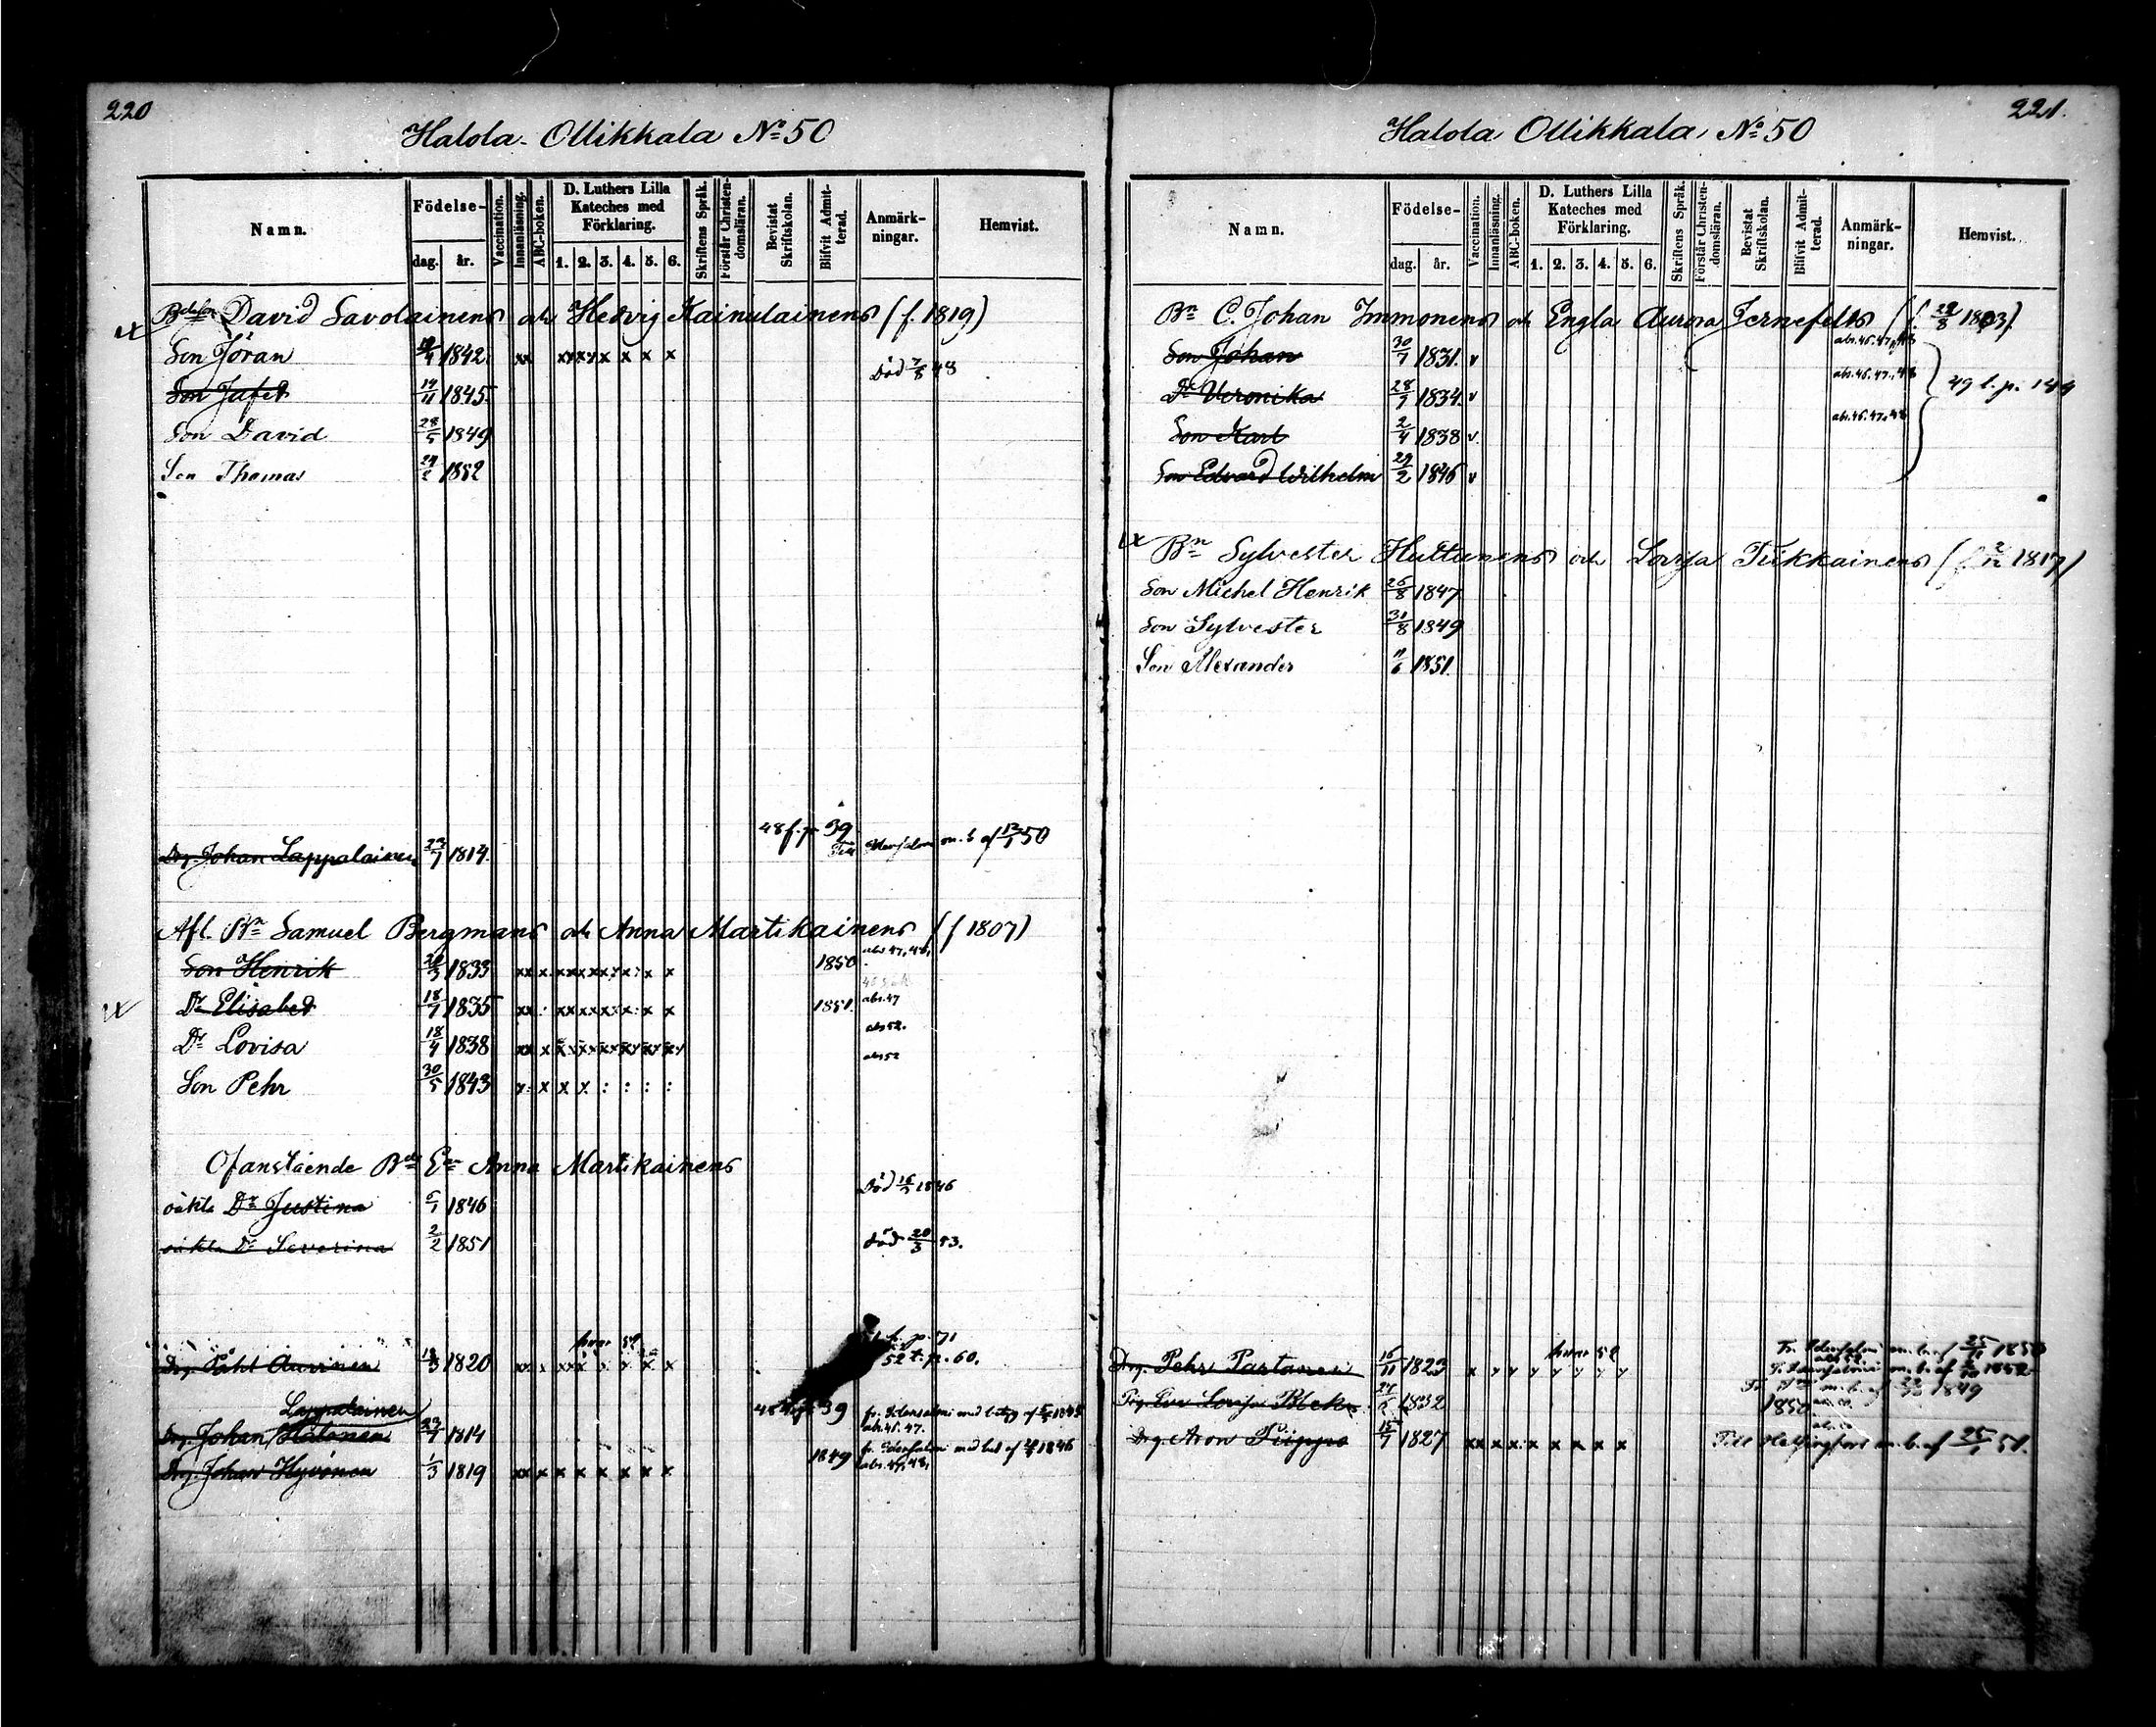 220
Halola Ollikkala No 50
Namn.
Födelse-
dag.
år.
Vaccination.
Innanläsning.
ABC-boken.
D. Luthers Lilla
Kateches med
Förklaring.
1. 2. 3. 4. 5. 6.
Skriftens Språk.
Förstår Christen-
domsläran.
Bevistat
Skriftskolan.
Blifvit Admit-
terad.
Anmärk-
ningar.
Hemvist.
David Savolainens och Hedvig Kainulainens (f. 1819)
Son Jöran 1842 xx xxxx x x x x
Son Jafet 19/11 1845 Död 7/8 48
Son David 28/5 1849
Son Thomas 29/2 1852
Drg. Johan Lappalainen 23/7 1814 48 f. p. 39 m. b. af 50
Afl. Bn Samuel Bergmans och Anna Martikainens (f 1807)
Son Henrik 1833 1850 abs 47, 48,
Dr Elisabet 1835 1851. abs. 47
Dr Lovisa 18/4 1838 abs 52.
Son Pehr 30/5 1843 abs 52
Ofanstående Anna Martikainens
oäkta Dr Justina 6/1 1846 Död 1846
oäkta Dr Severina 2/2 1851 död 20/3 53.
Drg. Påhl Auvinen 1820 p. 71
52 t. p. 60.
Lappalainen
Drg. Johan Halonen 23/7 1814 39 fr. Idensalmi med 1845
abs. 46. 47.
Drg. Johan Hyvönen 1/3 1819 xx x x x x x x x 1849 fr. Idensalmi med bet af 1846
abs. 47, 48,
221.
Halola Ollikkala No 50
Namn.
Födelse-
dag.
år.
Vaccination.
Innanläsning.
ABC-boken.
D. Luthers Lilla
Kateches med
Förklaring.
1. 2. 3. 4. 5. 6.
Skriftens Språk.
Förstår Christen-
domsläran.
Bevistat
Skriftskolan.
Blifvit Admit-
terad.
Anmärk-
ningar.
Hemvist.
Bn C. Johan Immonens och Engla Aurora Jernefelts
Son Johan 30/7 1831. v abs. 46. 47, 48
Dr Veronika 1834. v abs. 46. 47. 48 49 l. p. 149
Son Karl 2/4 1838 v. abs. 46. 47. 48
Son Edvard Wilhelm 29/2 1846 v
Bn Sylvester Huttunens och Lovisa Tikkainens
Son Michel Henrik 26/8 1847
Son Sylvester 31/8 1849
Son Alexander 11/6 1851.
Drg. Pehr Partanen 16/11 1823 Fr. Idensalmi m. b. af 25/11 1850
abs 52. m. b. af 1852
Pig. Eva Lovisa 1832 m. b. af 1849
1850
Drg. Aron Piippo 15/7 1827 xx x x x x x x x Till Helsingfors m. b. af 51.